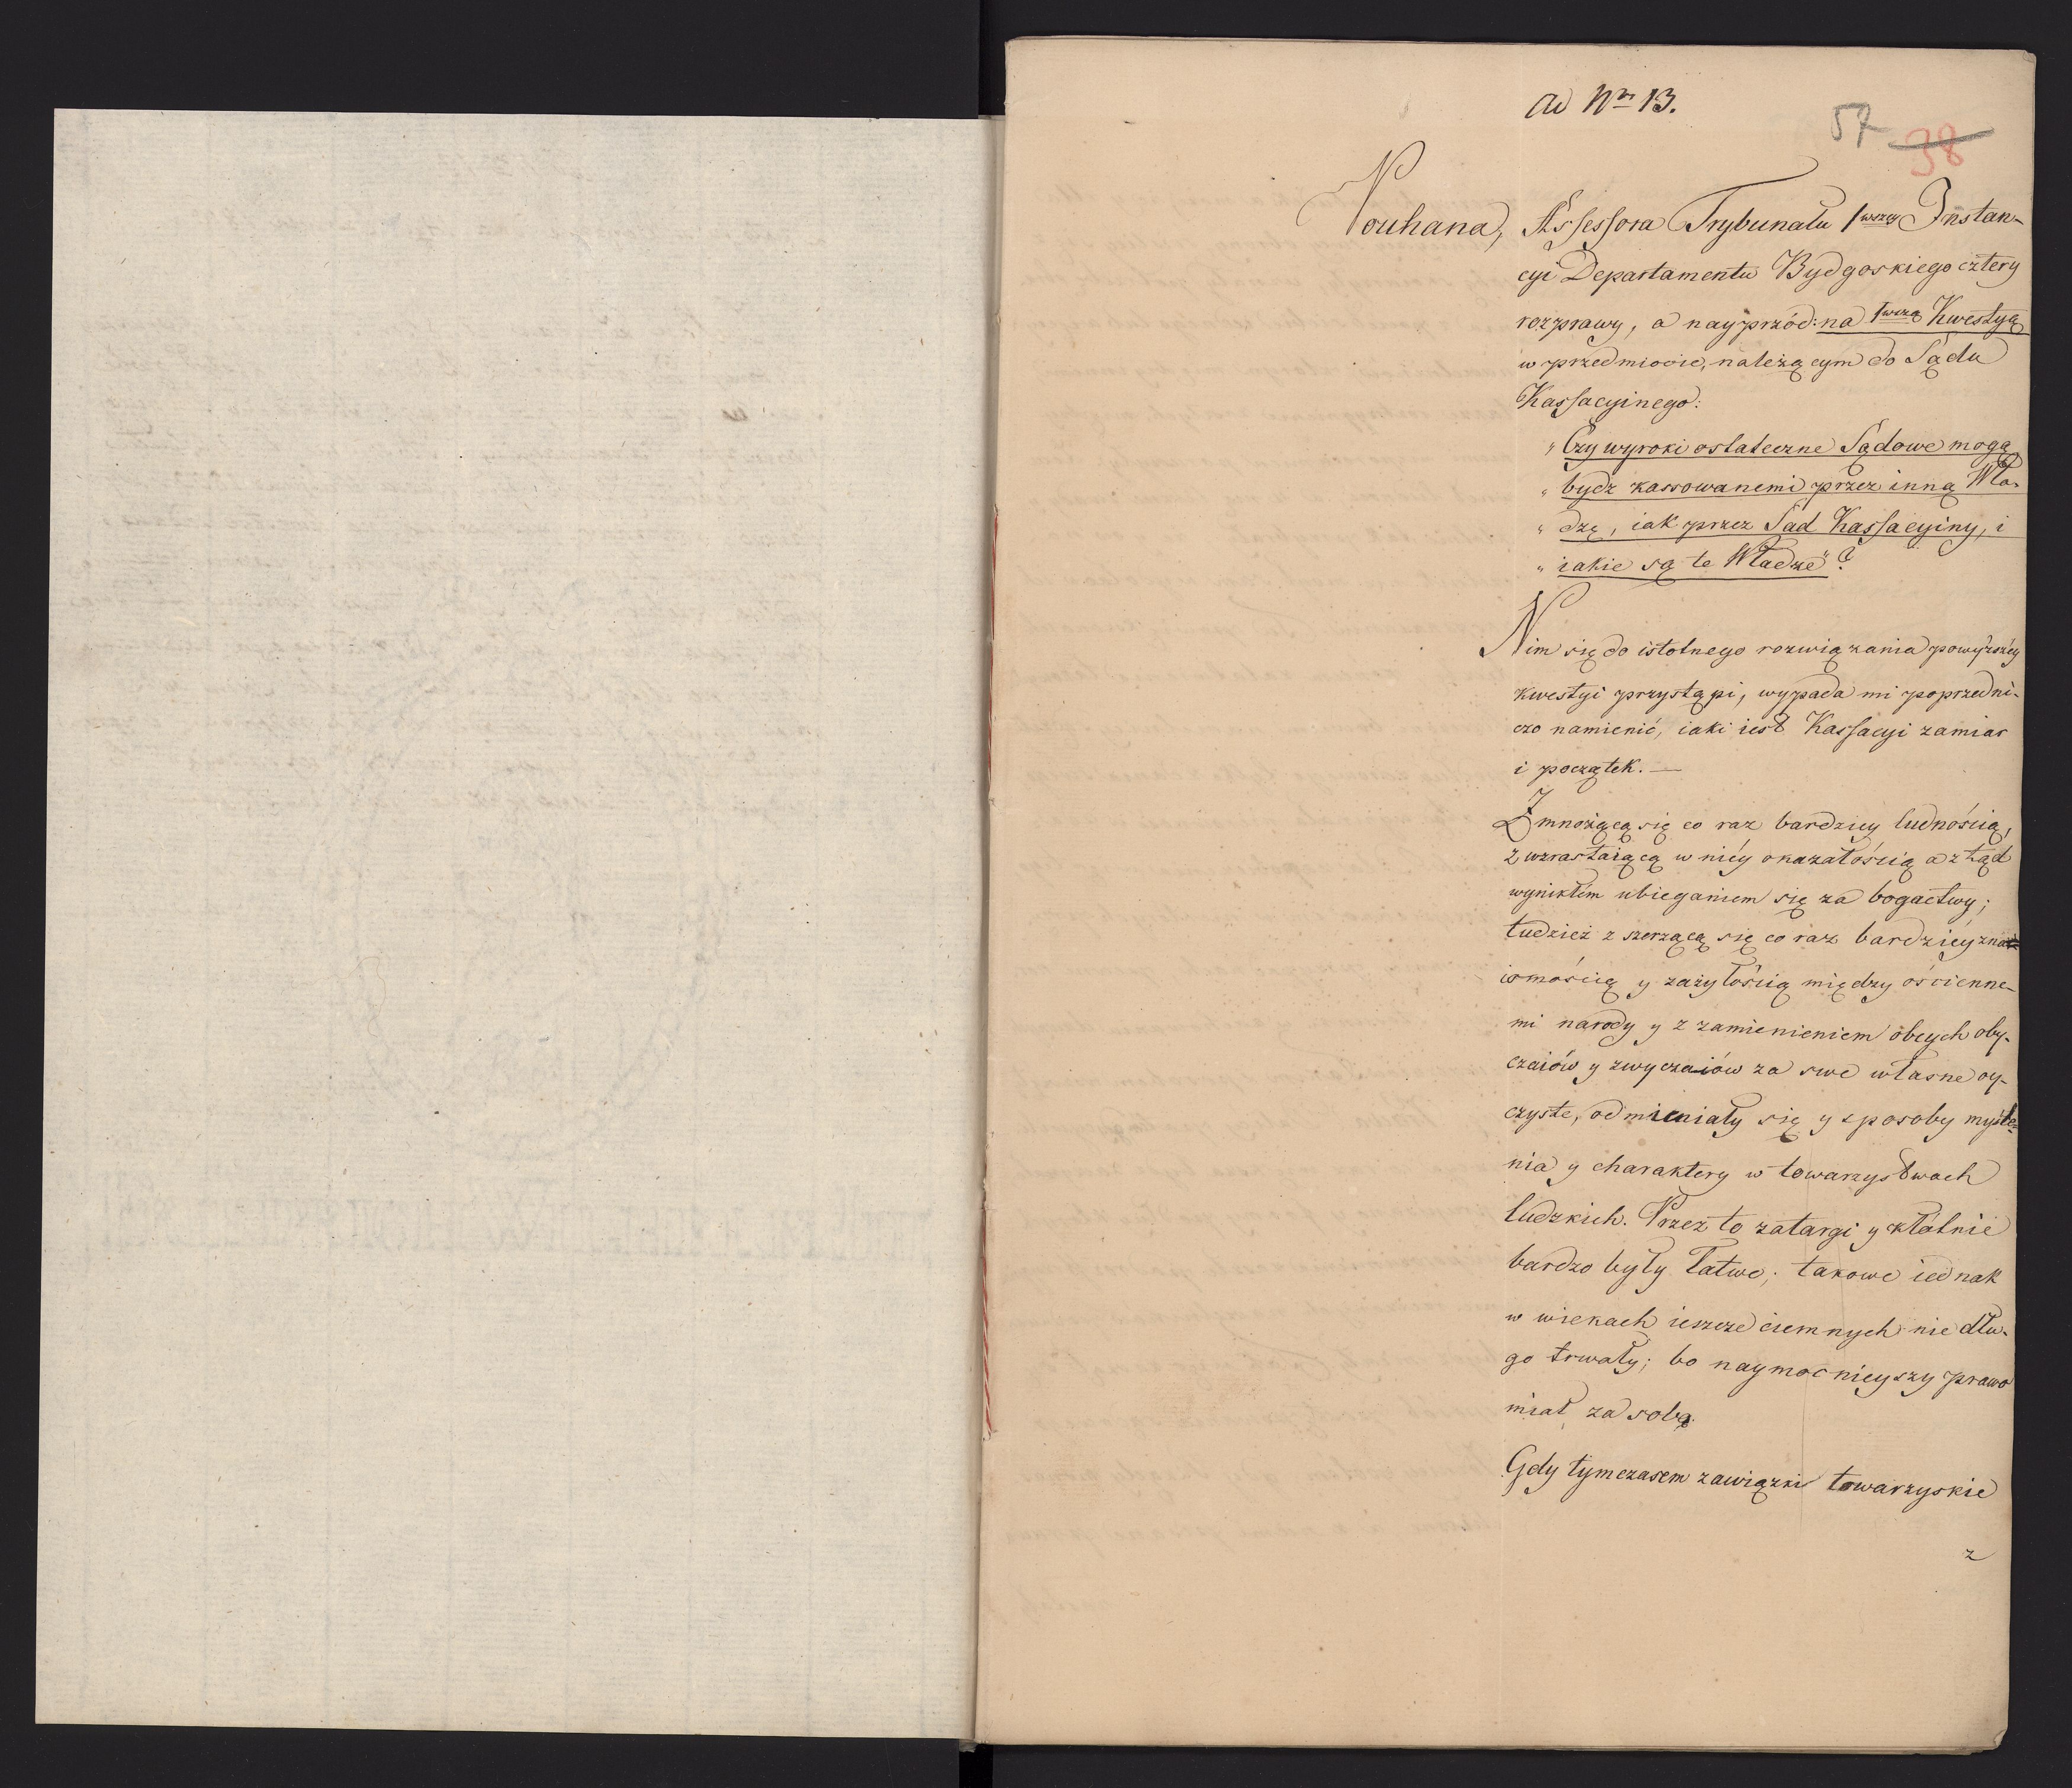 ad Nrm 13.
57 38
Pouhana, Assessora Trybunału 1wszey Instan-
cyi Departamentu Bydgoskiego cztery
rozprawy, a nayprzód: na 1wszą Kwestyą
w przedmiocie, należącym do Sądu
Kassacyinego:
" Czy wyroki ostateczne Sądowe mogą
" bydź kassowanemi przez inną Wła-
" dzę, iak przez Sąd Kassacyiny, i
" iakie są te Władze"?
Nim się do istotnego rozwiązania powyższéy
kwestyi przystąpi, wypada mi poprzedni-
czo namienić, iaki iest Kassacyi zamiar
i początek. —
Z mnożącą się co raz bardziey ludnością,
z wzrastaiącą w niéy okazałością a ztąd
wynikłém ubieganiem się za bogactwy;
tudzież z szerzącą się co raz bardziéy zna-
iomością y zażyłością między ościenne-
mi narody y z zamienieniem obcych oby-
czaiów y zwyczaiów za swe własne oy-
czyste, odmieniały się y sposoby myśle-
nia y charaktery w towarzystwach
ludzkich. Przez to zatargi y kłótnie
bardzo były łatwe; takowe iednak
w wiekach ieszcze ciemnych nie dłu-
go trwały; bo naymocnieyszy prawo
miał za sobą.
Gdy tymczasem zawiązki towarzyskie
z